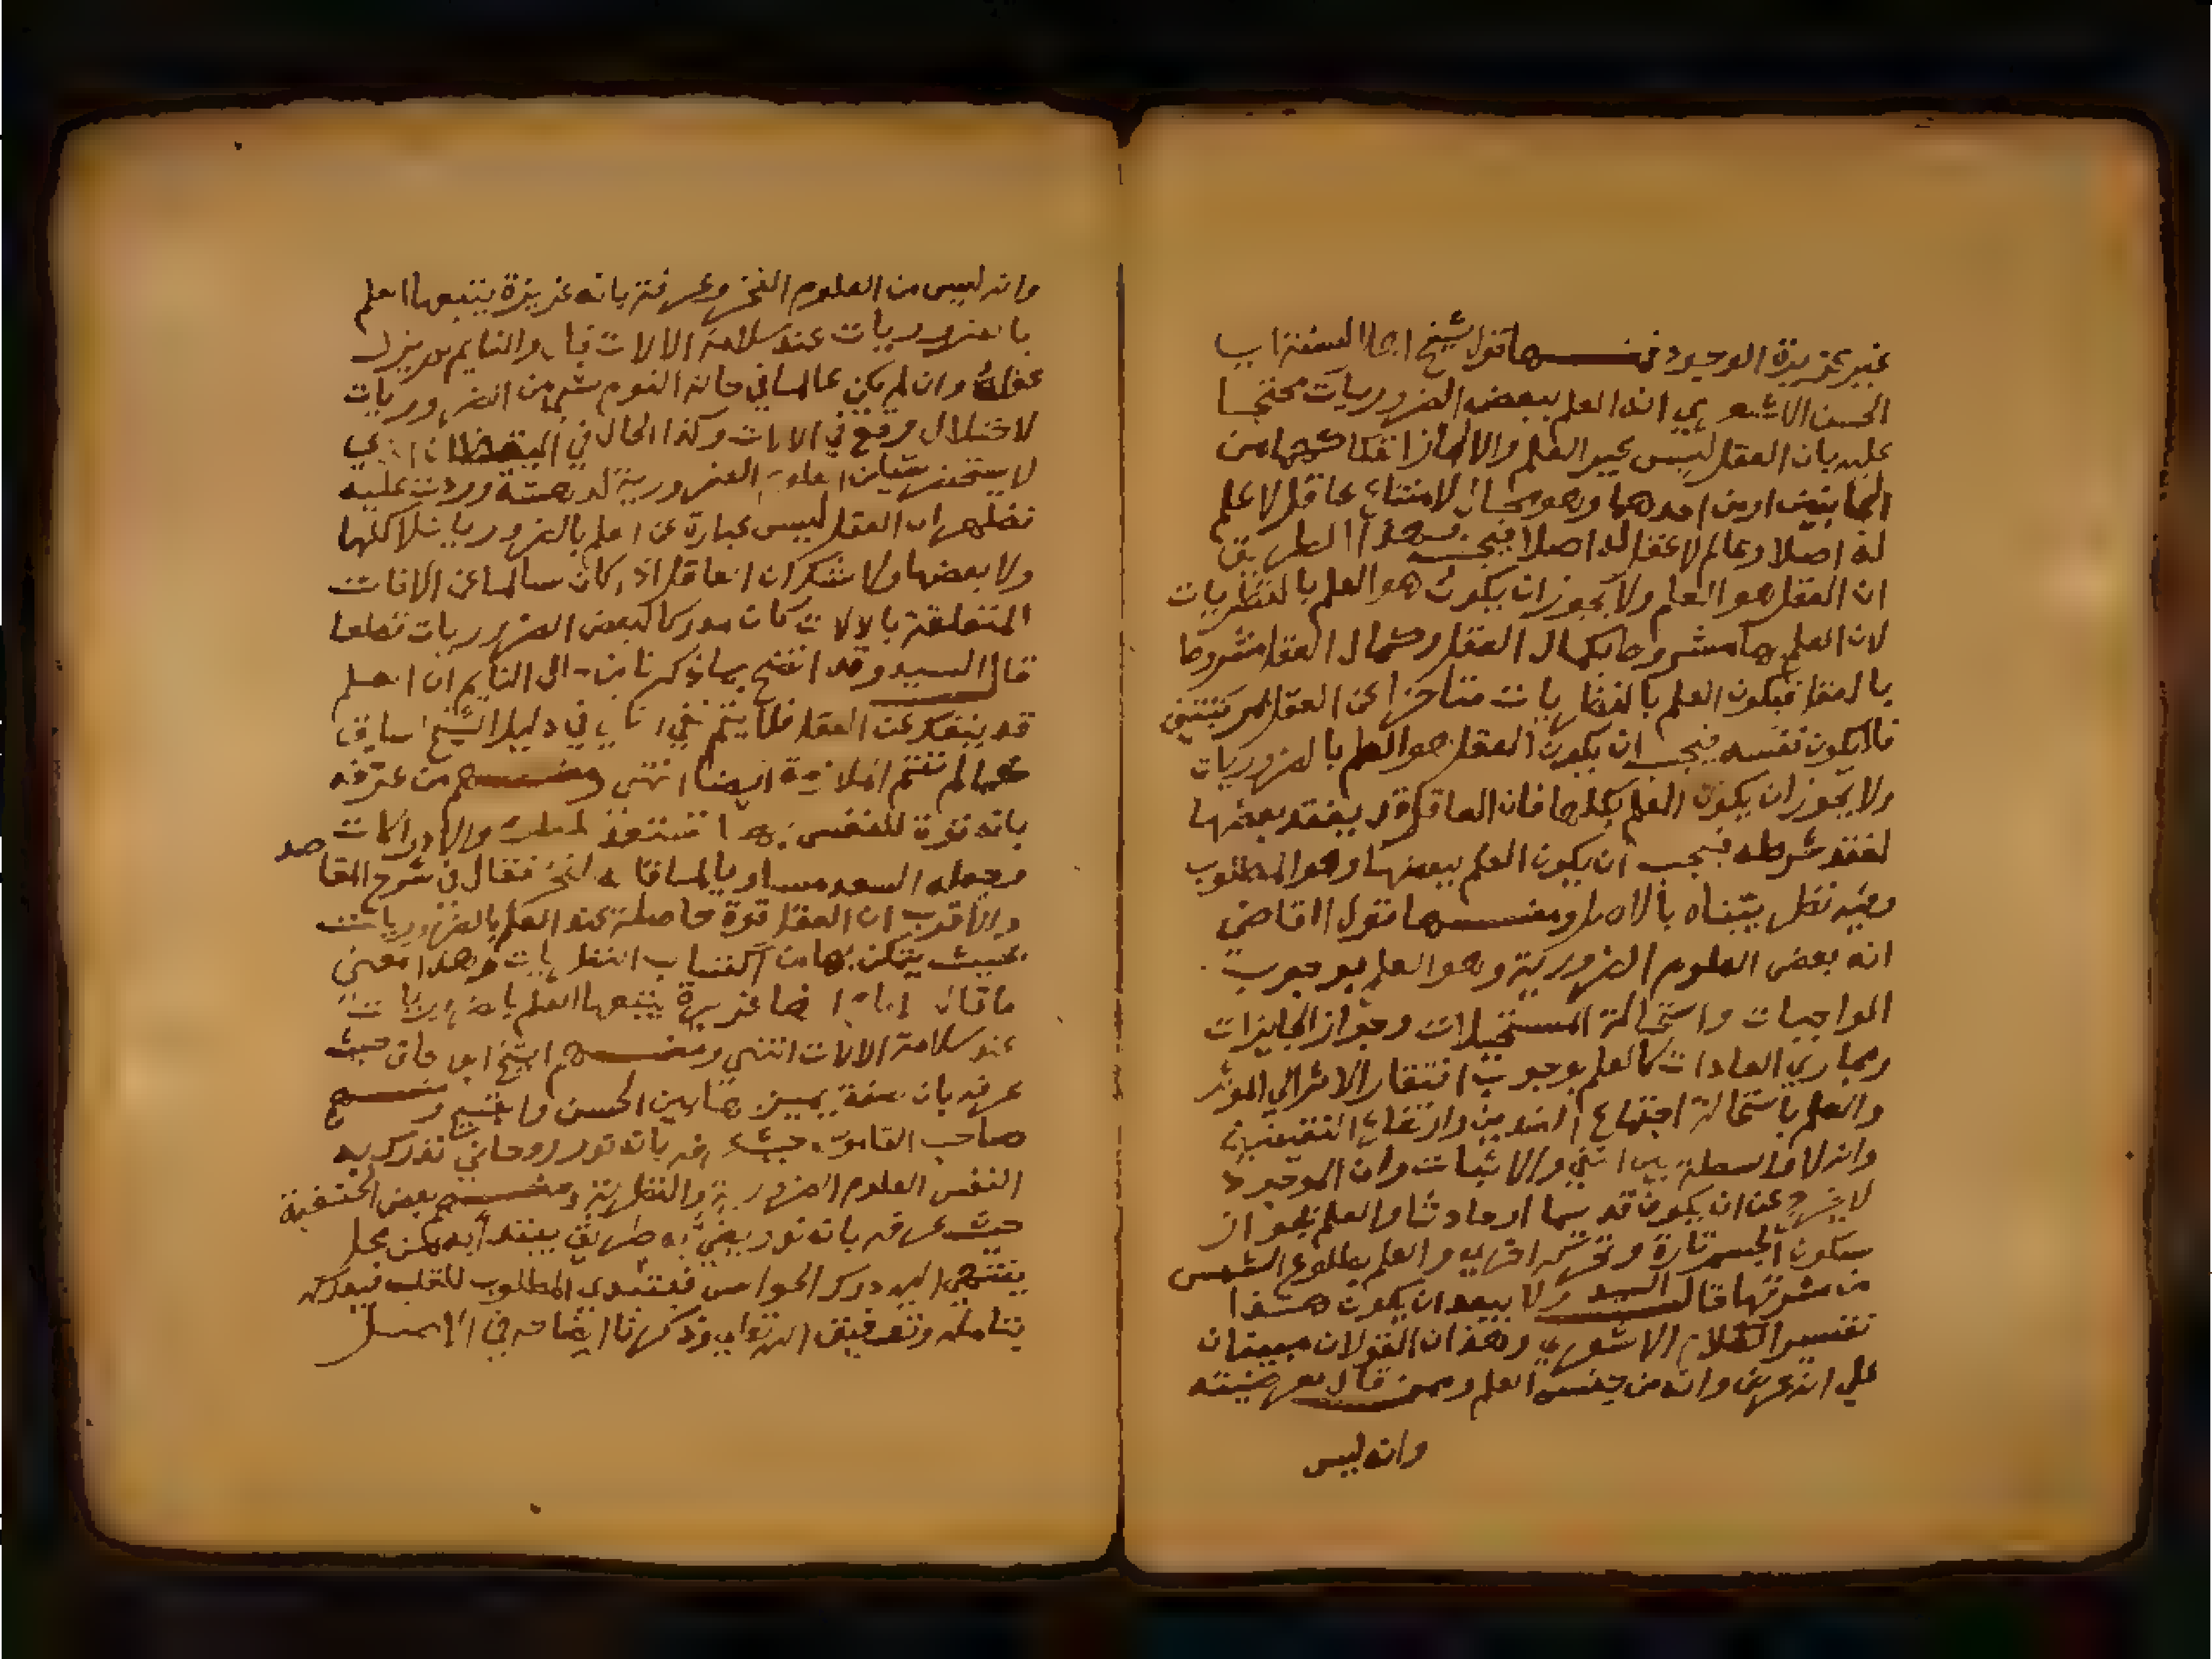 غير عزيزة الوجود فمنها قول شيخ اهل السنة ابي
الحسن الاشعري انه العلم ببعض الضروريات محتجا
عليه بان العقل ليس غير العلم والا لجاز انفكاكهما من
الجانبين او من احدهما وهو محال لامتناع عاقل لا علم
له اصلا وعالم لا عقل له اصلا فيجب بهذا الطريق
ان العقل هو العلم ولا يجوز ان يكون هو العلم بالنظريات
لان العلم بها مشروط بكمال العقل وكمال العقل مشروط
بالعقل فيكون العلم بالنظريات متاخرا عن العقل بمرتبتين
فلا يكون نفسه فيجب ان يكون العقل هو العلم بالضروريات
ولا يجوز ان يكون العلم بكلها فان العاقل قد يفقد بعضها
لفقد شرطه فيجب ان يكون العلم ببعضها وهو المطلوب
وفيه نظر بيناه بالاصل ومنها قول القاضي
انه بعض العلوم الضرورية وهو العلم بوجوب
الواجبات واستحالة المستحيلات وجواز الجايزات
ومجاري العادات كالعلم بوجوب افتقار الاثر الي الموثر
والعلم باستحالة اجتماع الضدين وارتفاع النقيضين
وانه لا واسطة بين النفي والاثبات وان الموجود
لا يخرج عن ان يكون قديما او حادثا والعلم بجواز
سكون الجسم تارة وتحركه اخري والعلم بطلوع الشمس
من مشرقها قال السيد ولا يبعد ان يكون هذا
تفسير الكلام الاشعري وهذان القولان مبينان
علي انه عرض وانه من جنس العلم وممن قال بعرضيته
وانه ليس
وانه ليس من العلوم الفخر وعرفه بانه غريزة يتبعها العلم
بالضروريات عند سلامة الالات قال والنايم لم يزل
عقله وان لم يكن عالما في حالة النوم بشي من الضروريات
لاختلال وقع في الالات وكذا الحال في اليقظان الذي
لا يستحضر شيا من العلوم الضرورية لدهشة وردت عليه
فظهر ان العقل ليس عبارة عن العلم بالضروريات لا كلها
ولا بعضها ولا شك ان العاقل اذا كان سالما عن الافات
المتعلقة بالالات كان مدركا لبعض الضروريات قطعا
قال السيد وقد اتضح بما ذكرنا من حال النايم ان العلم
قد ينفك عن العقل فلا يتم نفي التالي في دليل الشيخ السابق
كما لم تتم الملازمة ايضا انتهي ومنهم من عرفه
بانه قوة للنفس بها تستعد للعلوم والادراكات
وجعله السعد مساويا لما قاله الفخر فقال في شرح المقاصد
والاقرب ان العقل قوة حاصلة عند العلم بالضروريات
بحيث يتمكن بها من اكتساب النظريات وهذا معني
ما قال الامام انها غريزة يتبعها العلم بالضروريات
عند سلامة الالات انتهي ومنهم الشيخ ابو حيث
عرفه بانه صفة يميز بها بين الحسن والقبيح ومنهم
صاحب القاموس حيث عرفه بانه نور روحاني تدرك به
النفس العلوم الضرورية والنظرية ومنهم بعض الحنفية
حيث عرفه بانه نور يضيء به طريق يبتدأ به من محل
ينتهي اليه درك الحواس فيبتدي المطلوب للقلب فيدركه
بتامله وتوفيق الله تعالي وذكرنا ايضاحه في الاصل